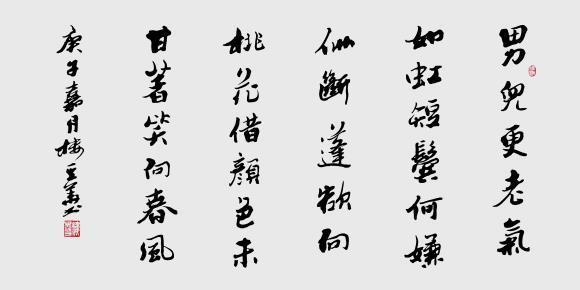 男兒更老氣
如虹短鬢何嫌
似斷蓬欲問
桃花借顏色未
甘著笑向春風
庚子嘉月樓